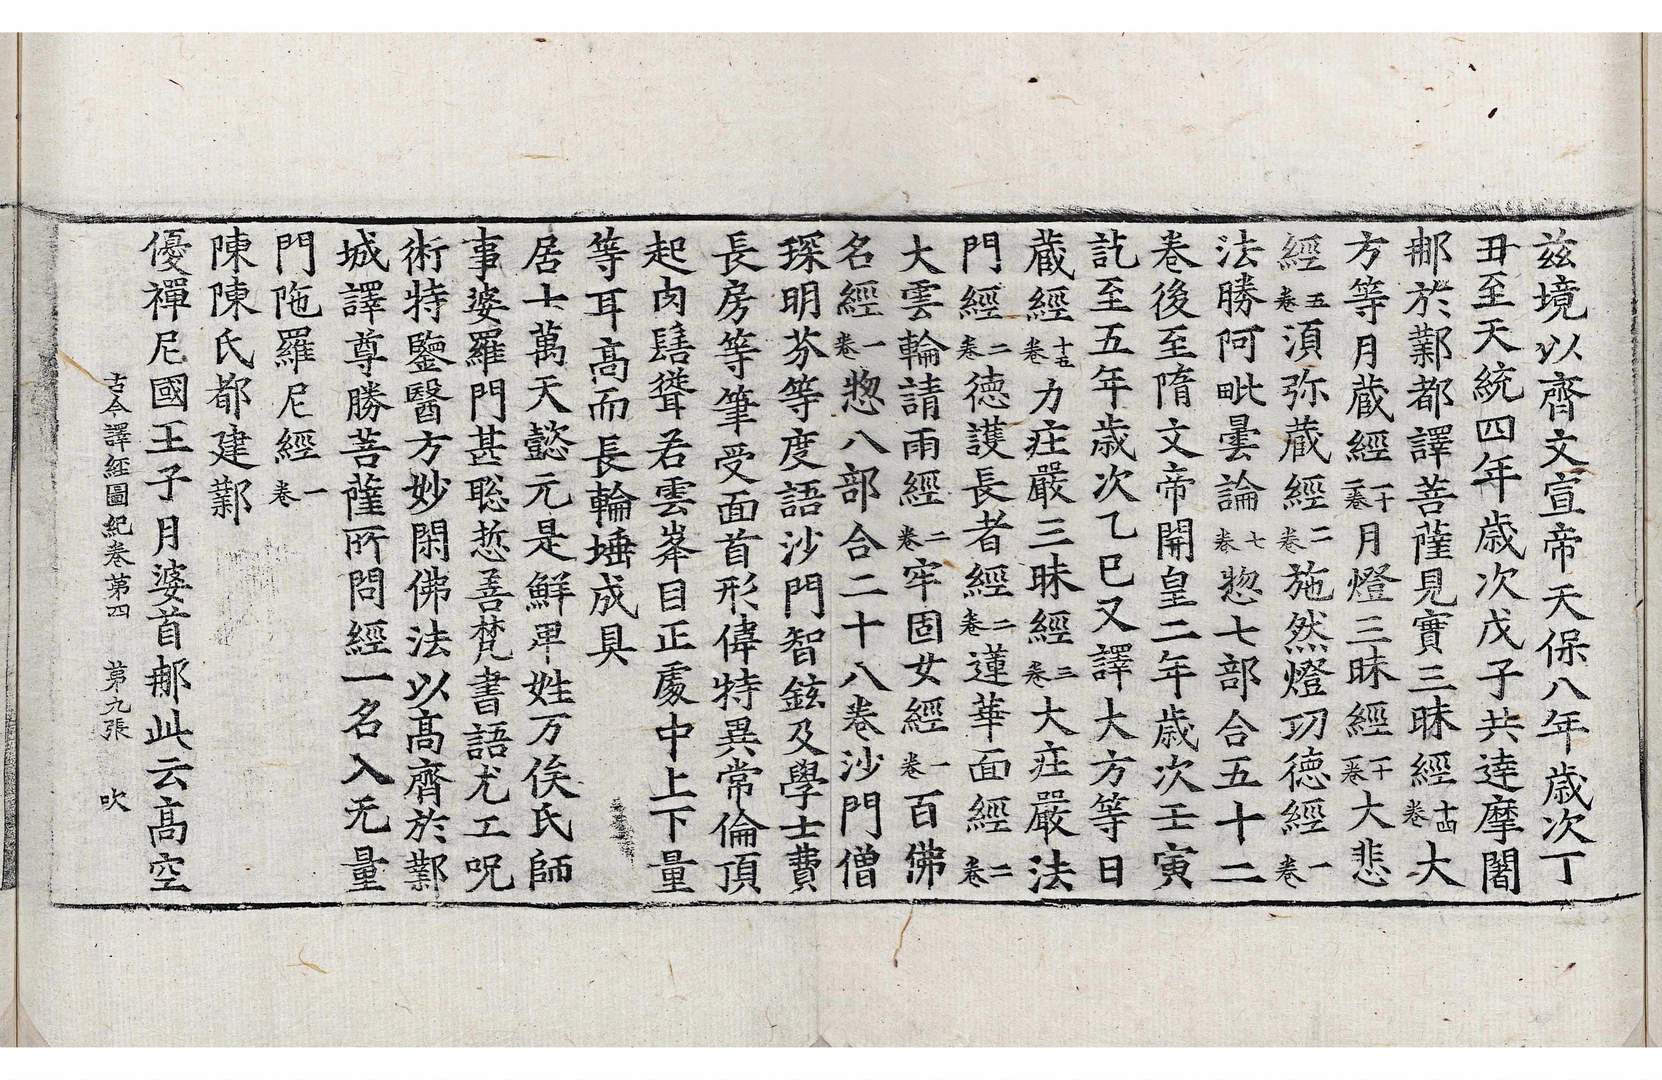 兹境以齊文宣帝天保八年歲次丁
丑至天統四年歲次戊子共達摩闍
那於鄴都譯菩薩見實三昧經十四卷大
方等月藏經一十二卷月燈三昧經一十卷大悲
經五卷須弥藏經二卷施然燈功德經一卷
法勝阿毗曇論七卷惣七部合五十二
卷後至隋文帝開皇二年歲次壬寅
訖至五年歲次乙巳又譯大方等日
藏經十五卷力庄嚴三昧經三卷大庄嚴法
門經二卷德護長者經二卷蓮華面經二卷
大雲輪請雨經二卷牢固女經一卷百佛
名經一卷惣八部合二十八卷沙門僧
琛明芬等度語沙門智鉉及學士費
長房等筆受面首形偉特異常倫頂
起肉髻聳若雲峯目正處中上下量
等耳高而長輪埵成具
居士萬天懿元是鮮卑姓万俟氏師
事婆羅門甚聡悊善梵書語尤工呪
術特鑒醫方妙閑佛法以高齊於鄴
城譯尊勝菩薩所問經一名入无量
門陁羅尼經一卷
陳陳氏都建鄴
優禪尼國王子月婆首那此云高空
古今譯經圖紀卷第四　第九張　吹